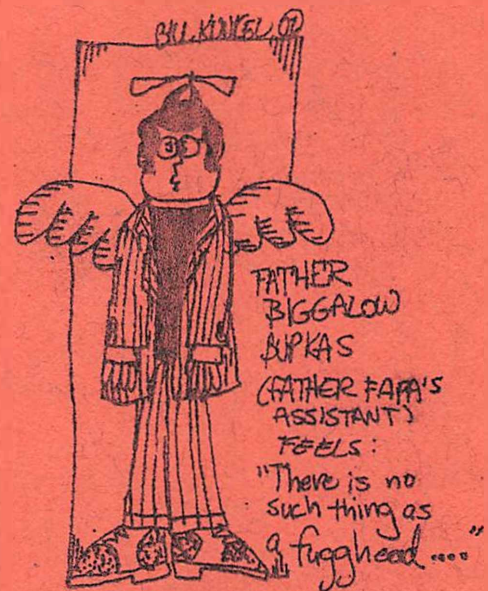 BILL KUNKEL 07
FATHER
BIGGALOW
BUPKAS
(FATHER FAPA'S
ASSISTANT)
FEELS:
"There is no
such thing as
a fugghead ...."